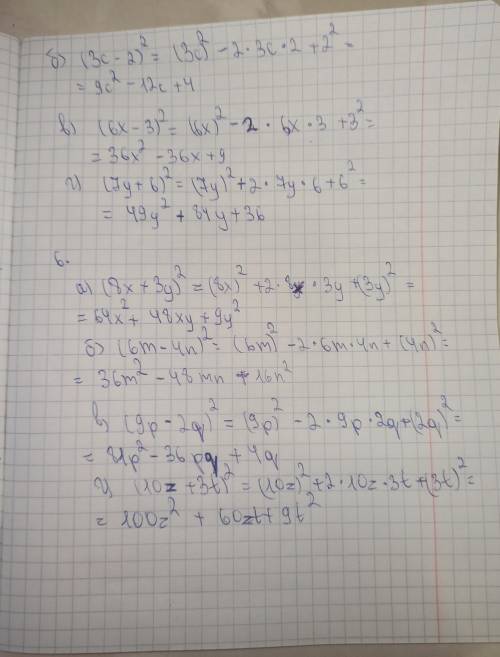 б) (3c - 2)² = (3c)² - 2 · 3c · 2 + 2² =
= 9c² - 12c + 4
в) (6x - 3)² = (6x)² - 2 · 6x · 3 + 3² =
= 36x² - 36x + 9
г) (7y + 6)² = (7y)² + 2 · 7y · 6 + 6² =
= 49y² + 84y + 36
6.
а) (8x + 3y)² = (8x)² + 2 · 8x · 3y + (3y)² =
= 64x² + 48xy + 9y²
б) (6m - 4n)² = (6m)² - 2 · 6m · 4n + (4n)² =
= 36m² - 48mn + 16n²
в) (9p - 2q)² = (9p)² - 2 · 9p · 2q + (2q)² =
= 81p² - 36pq + 4q
г) (10z + 3t)² = (10z)² + 2 · 10z · 3t + (3t)² =
= 100z² + 60zt + 9t²